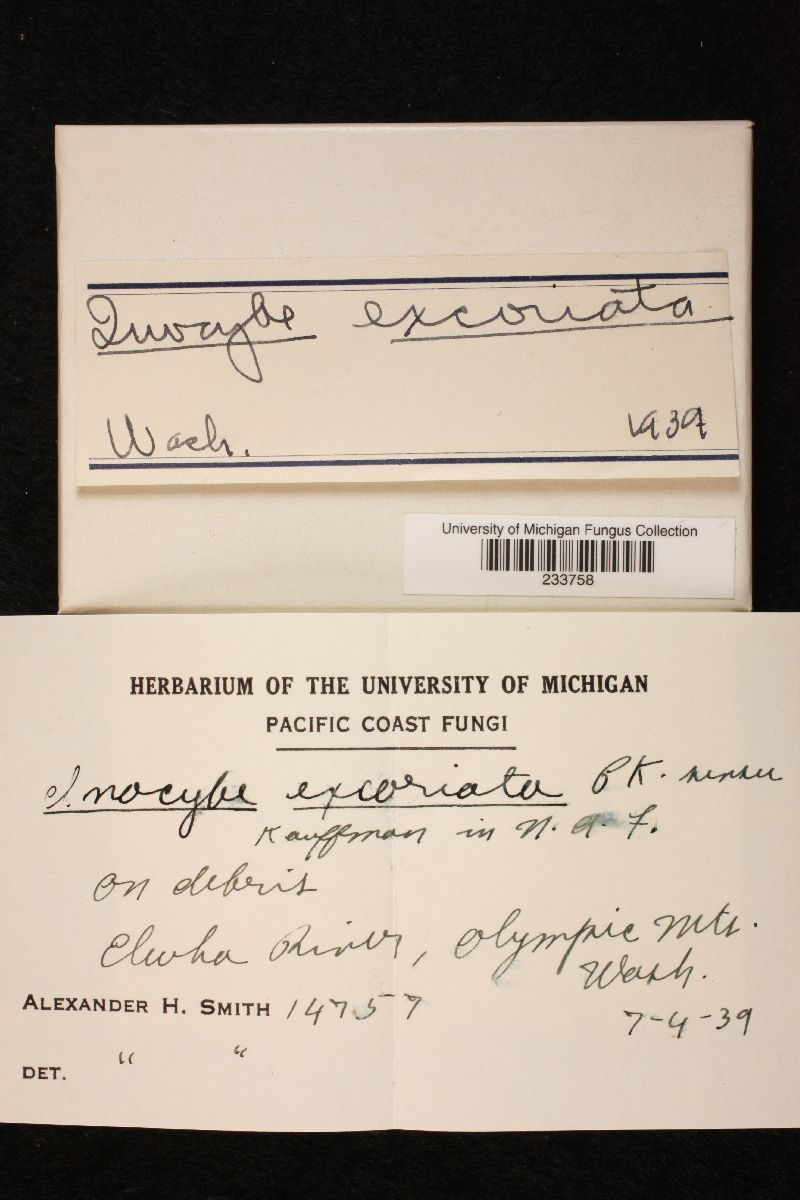 Inocybe excoriata
Wash. 1939
University of Michigan Fungus Collection
233758
HERBARIUM OF THE UNIVERSITY OF MICHIGAN
PACIFIC COAST FUNGI
Inocybe excoriata PK. sensu
Kauffman in N. A. F.
on debris
Elwha River, Olympic Mts.
Wash.
ALEXANDER H. SMITH 14757 7-4-39
DET. " "